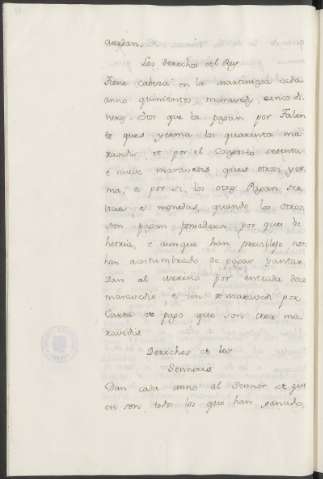 Los derechos del Rey
Tiene cabeza en la martiniega cada
anno quinientos maravedis e cinco di
neros. Dor que la pagan por Falen
te que yerma los quarenta ma
ravedis, et por el Coyanto sesenta
e nueve maravedis, que es otrosi yer
ma, e por si, los otros Pagan ser
vicios e monedas, quando los otros
son pagan fonsadera por que de
hetria, e aunque han previllejo non
han acostumbrado de pagar yantar
Dan al merino por entrada doze
maravedis
maravedis
Derechos de los
Sennores
Dan cada anno al Sennor de qui
en son, todos los que han ganado,